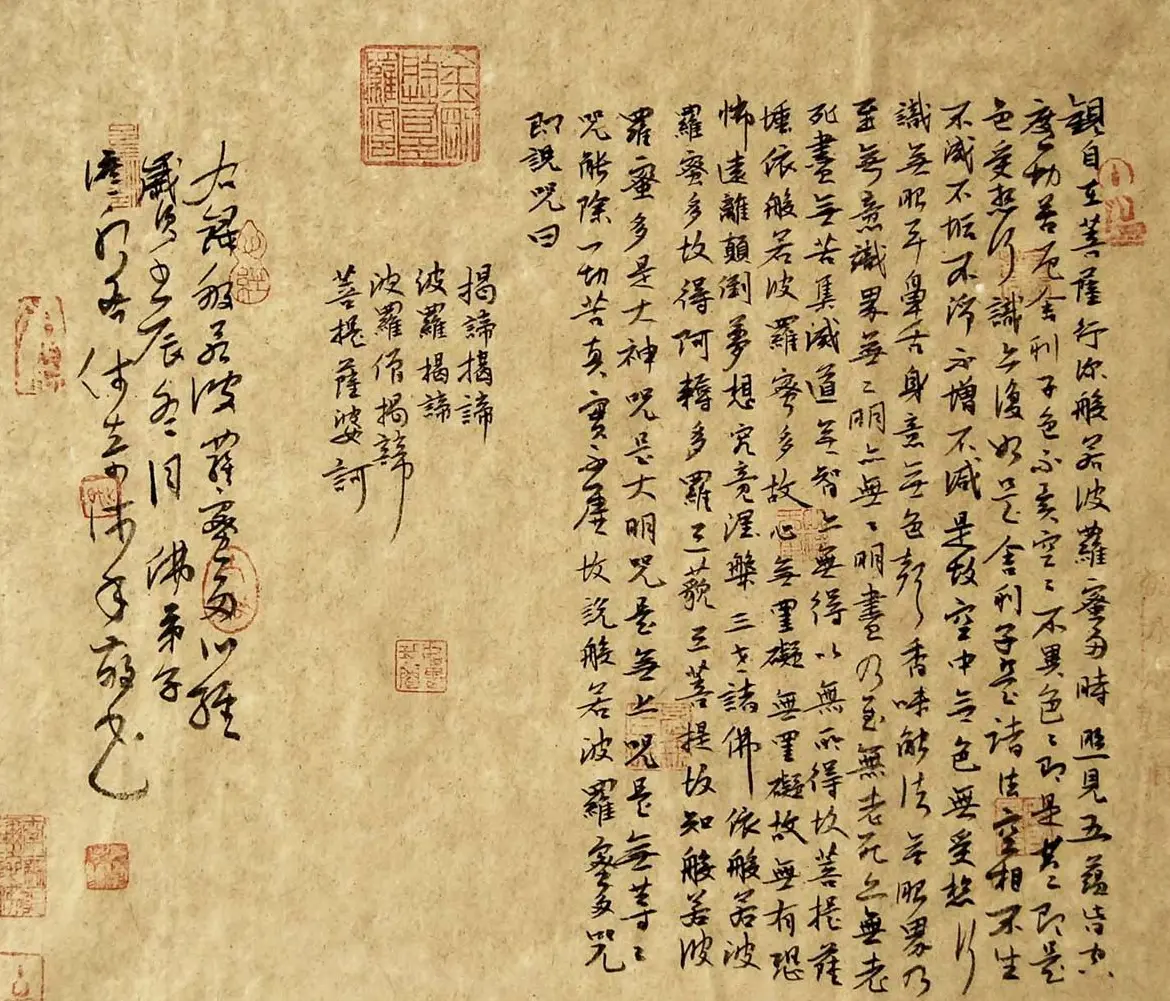 觀自在菩薩行深般若波羅蜜多時照見五蘊皆空
度一切苦厄舍利子色不異空〻不異色〻即是空〻即是
色受想行識亦復如是舍利子是諸法空相不生
不滅不垢不淨不增不減是故空中無色無受想行
識無眼耳鼻舌身意無色聲香味觸法無眼界乃
至無意識界無〻明亦無〻明盡乃至無老死亦無老
死盡無苦集滅道無智亦無得以無所得故菩提薩
埵依般若波羅蜜多故心無罣礙無罣礙故無有恐
怖遠離顛倒夢想究竟涅槃三世諸佛依般若波
羅蜜多故得阿耨多羅三藐三菩提故知般若波
羅蜜多是大神咒是大明咒是無上咒是無等〻
咒能除一切苦真實不虛故說般若波羅蜜多咒
即說咒曰
揭諦揭諦
波羅揭諦
波羅僧揭諦
菩提薩婆訶
右錄般若波羅蜜多心經
歲次壬辰冬月佛弟子
敬書